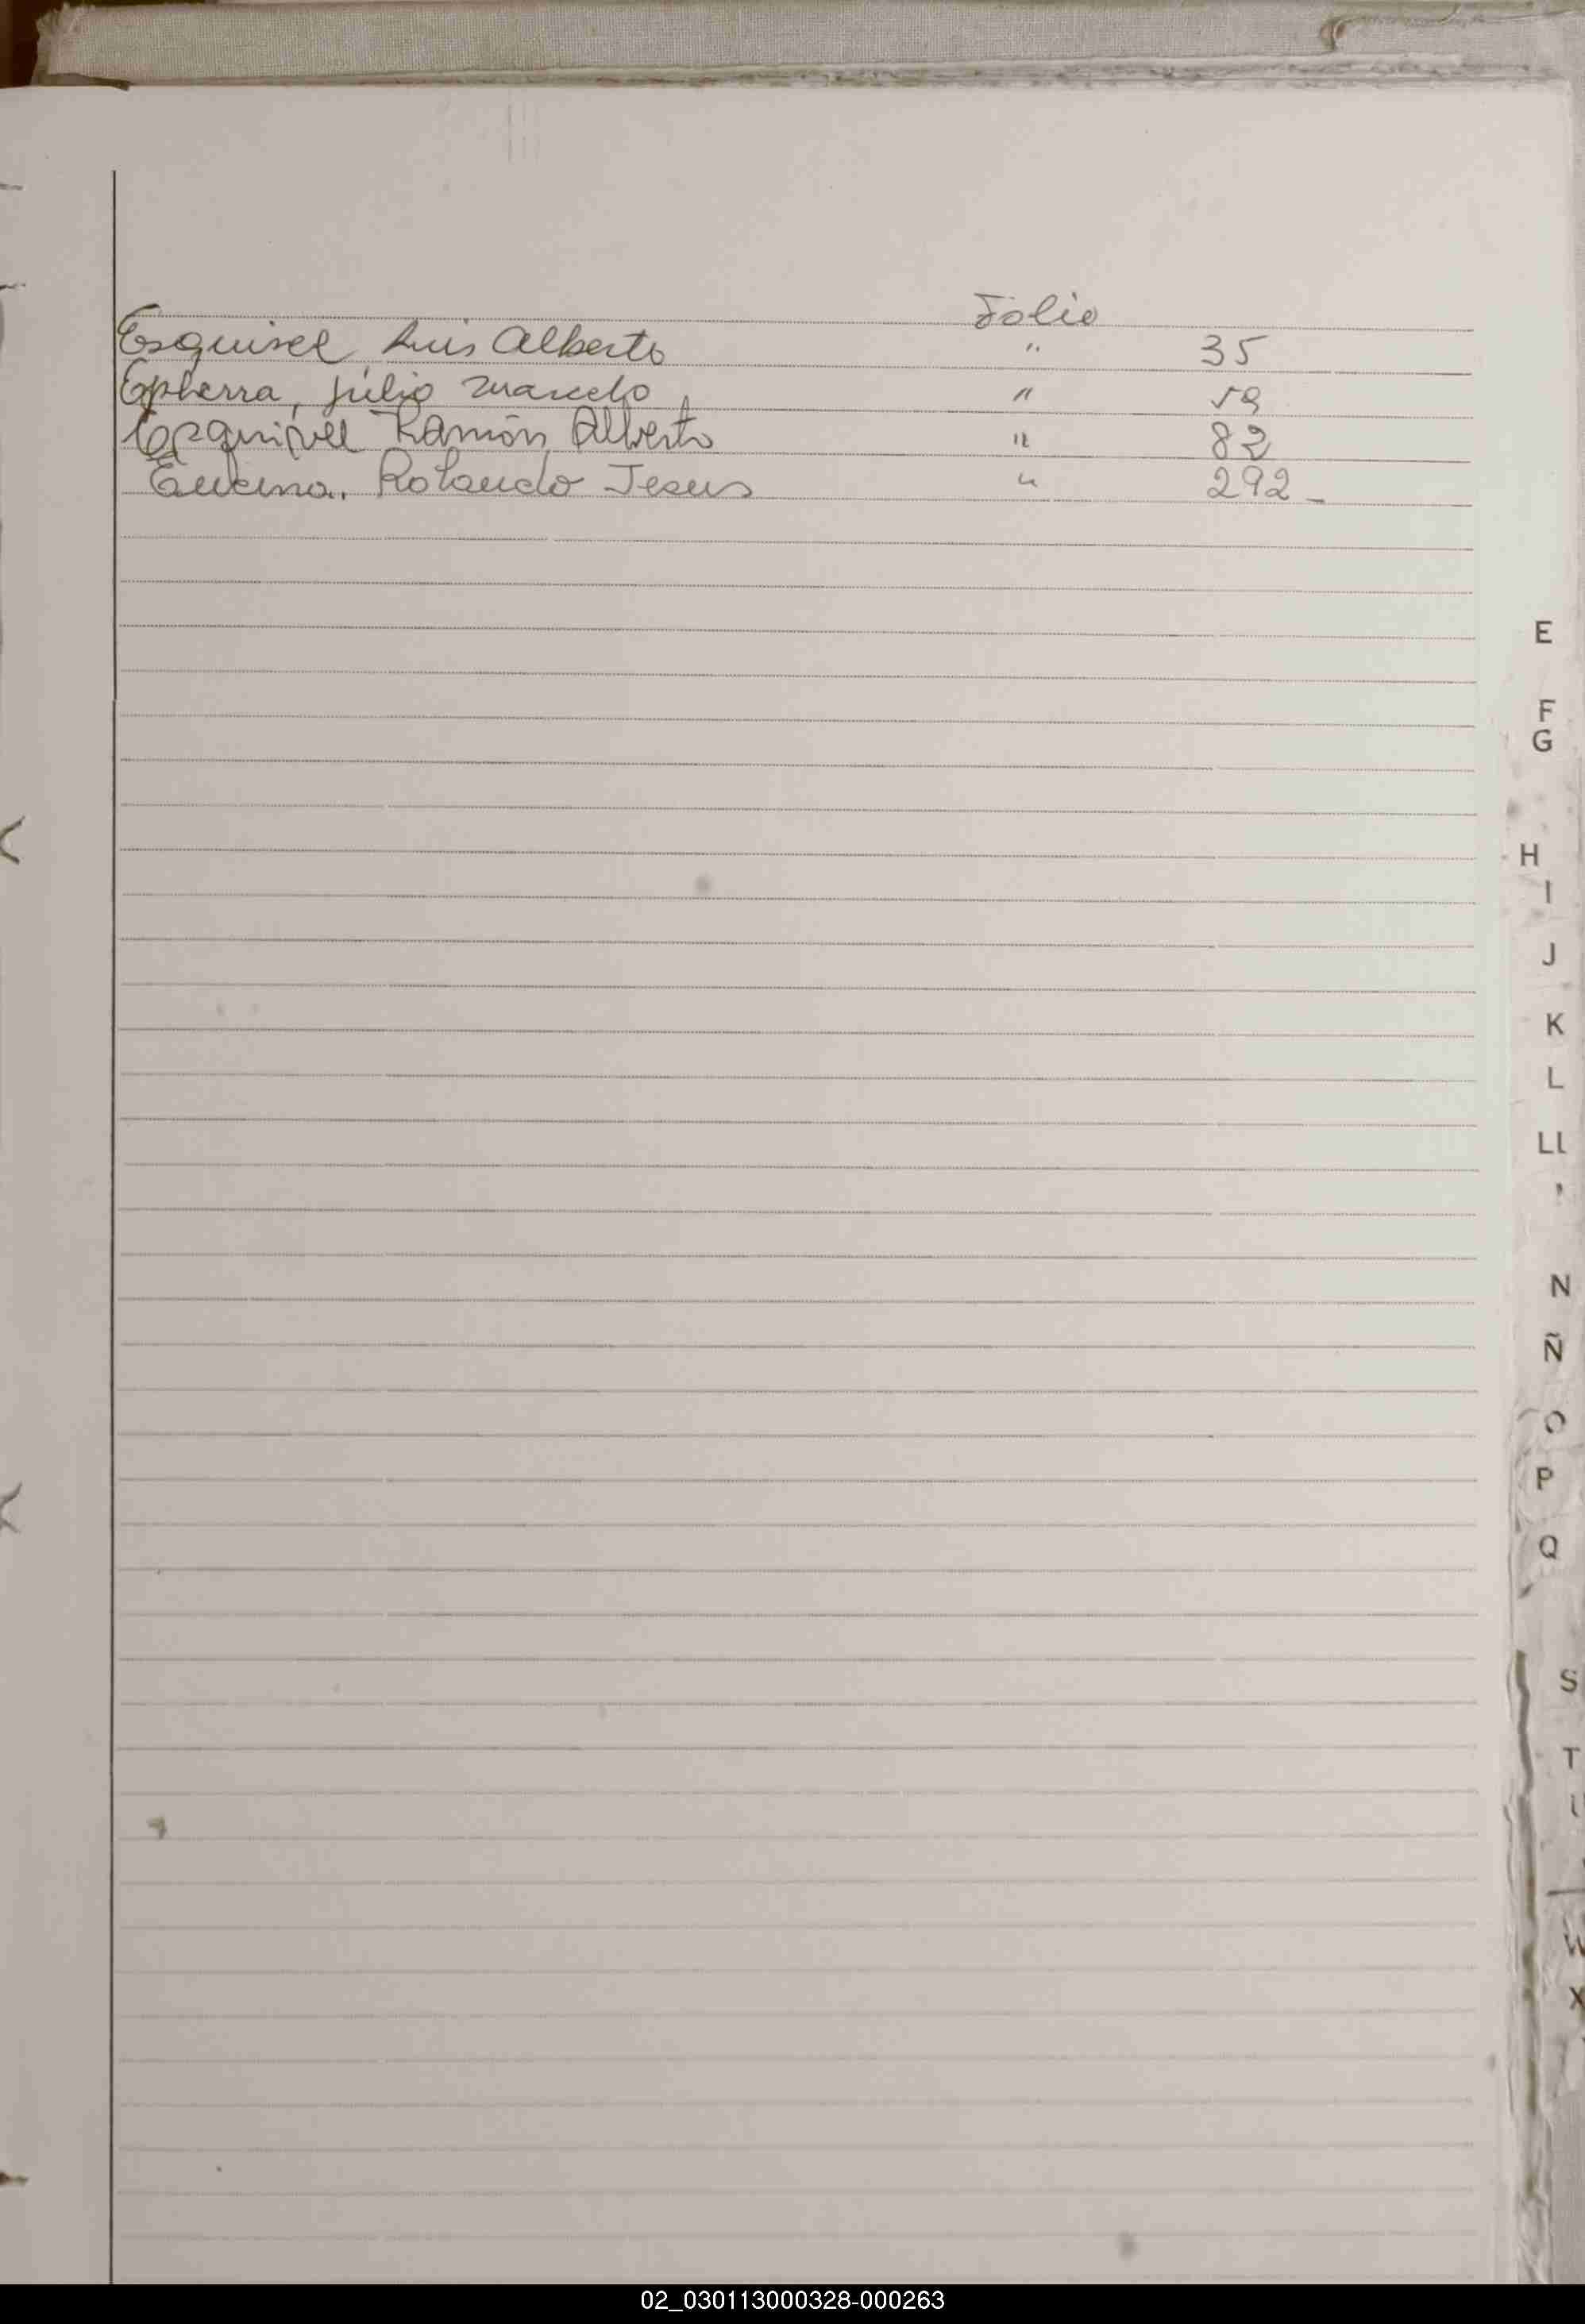 Folio
Esquivel Luis Alberto " 35
Epherra, Júlio Marcelo " 59
Esquivel Ramón Alberto " 82
Encina. Rolando Jesus " 292_
E
F
G
H
I
J
K
L
LL
N
Ñ
O
P
Q
S
T
U
W
X
02_030113000328-000263